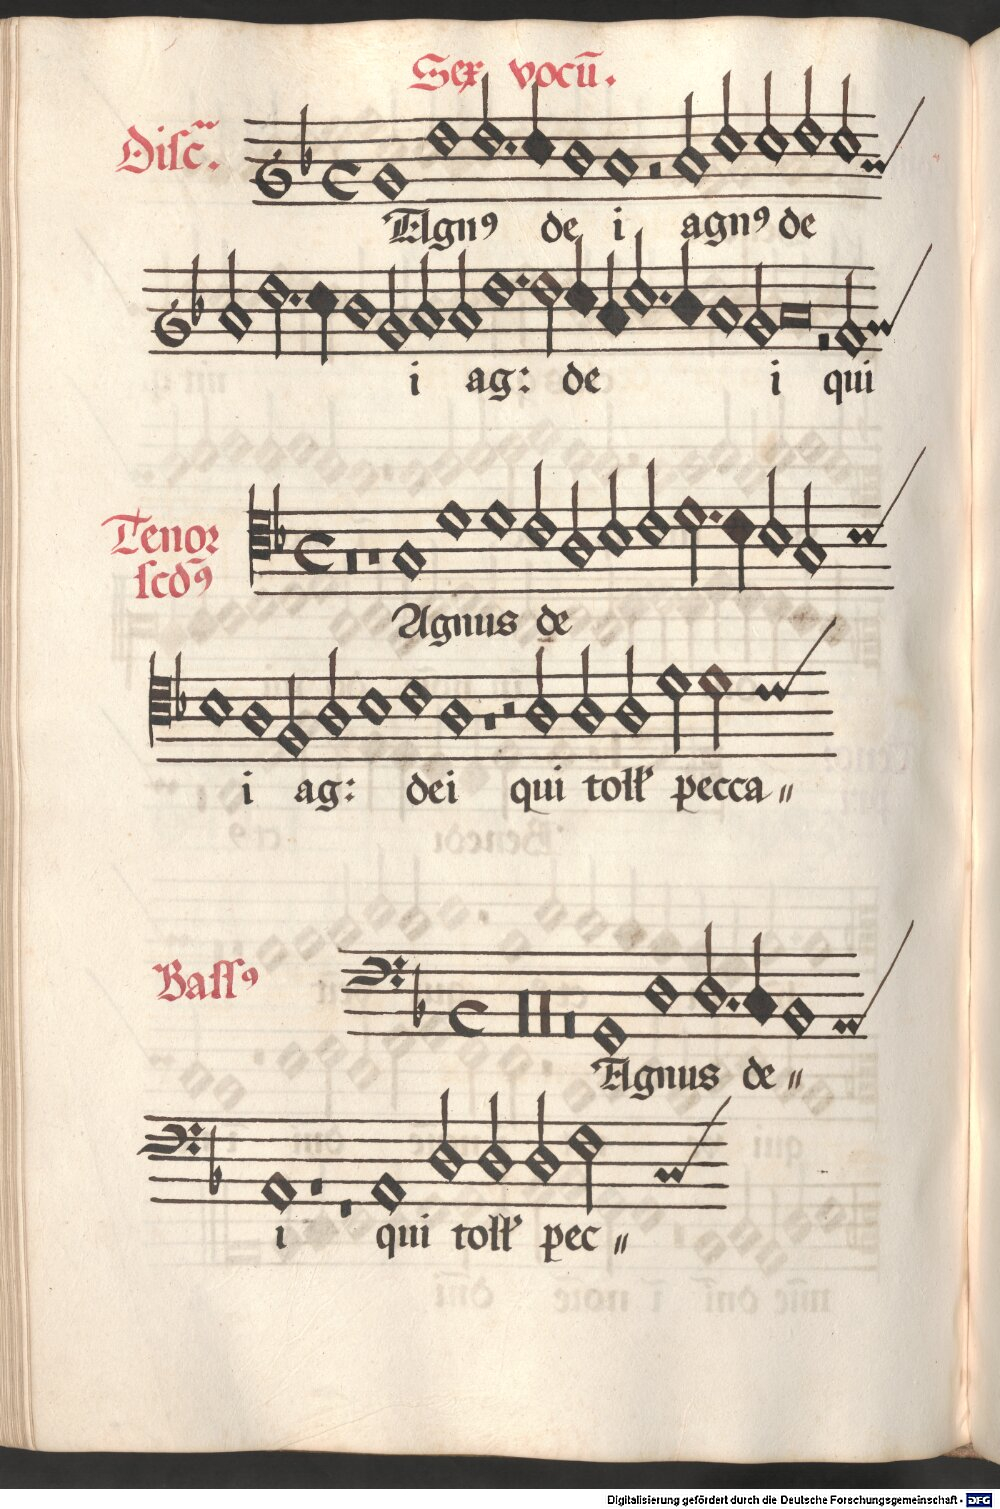 Sex vocū.
Disc̄.
Agnꝯ de i agnꝯ de
i ag: de i qui
Tenor
scdꝯ
Agnus de
i ag: dei qui toll' pecca〃
Bassꝯ
Agnus de〃
i qui toll' pec〃
Digitalisierung gefördert durch die Deutsche Forschungsgemeinschaft - DFG